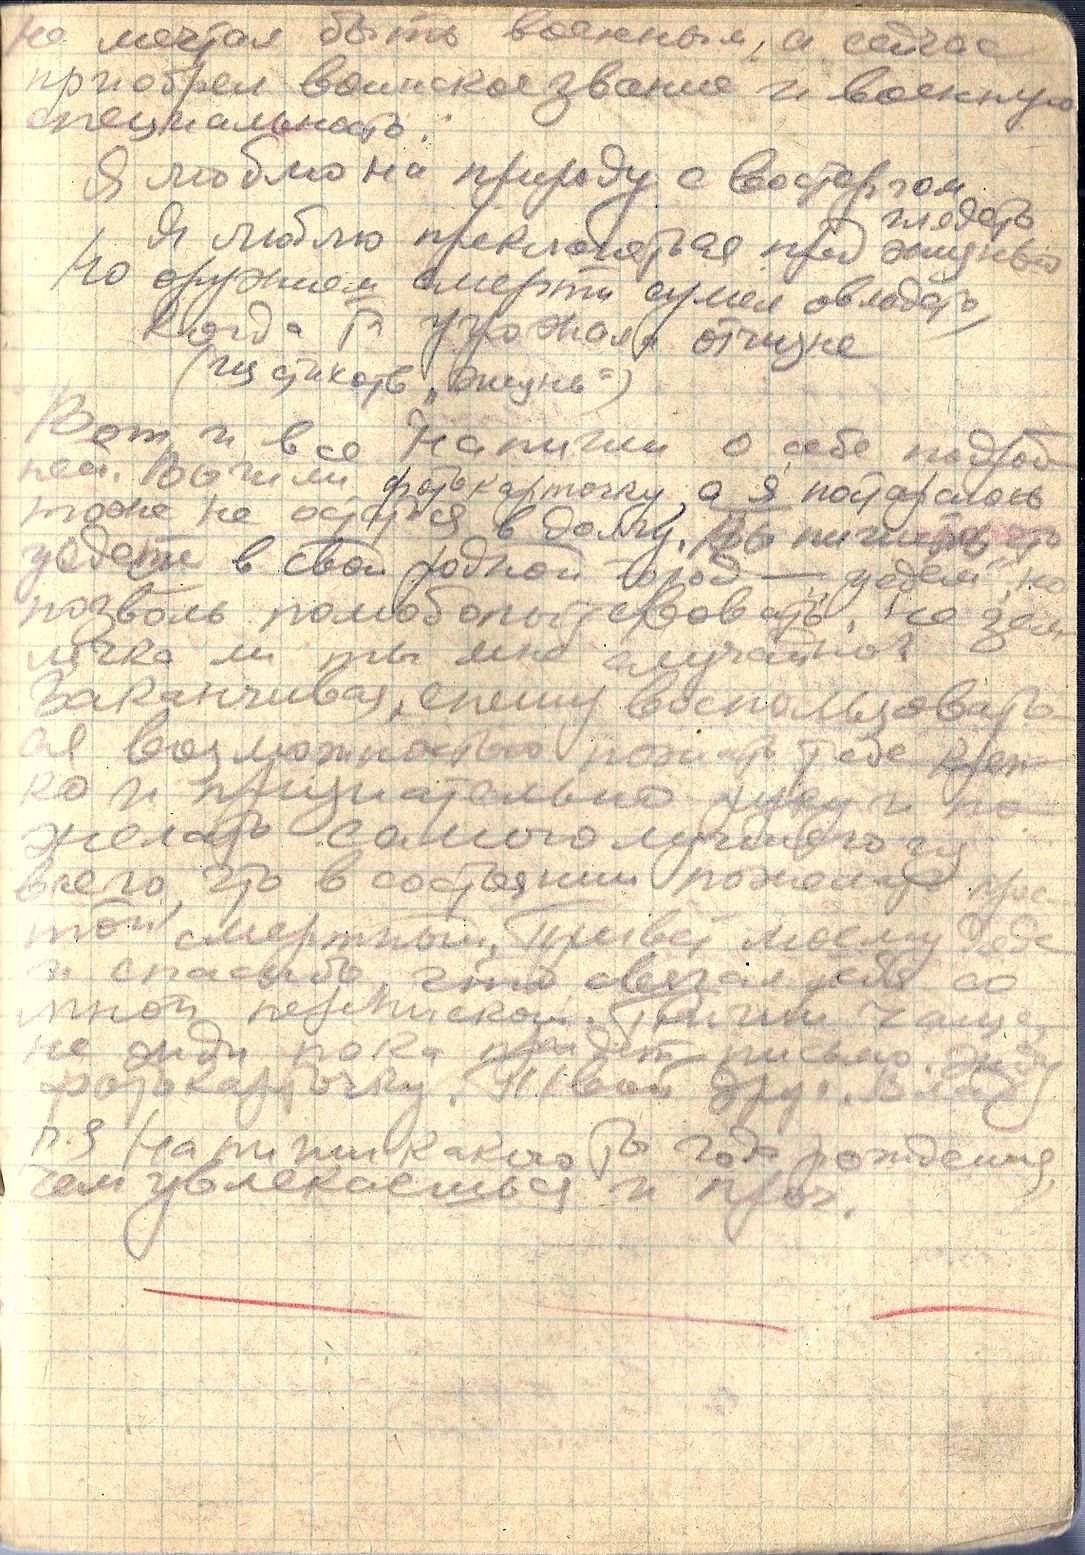 не мечтал быть военным, а сейчас
приобрел воинское звание и военную
специальность.
Я люблю на природу с восторгом
глядеть
Я люблю преклоняться пред жизнью
Но оружием смерти сумел овладеть,
Когда угрожала отчизне
(из стихотв. „Жизнь“)
Вот и все Напиши о себе подроб
ней. Вышли фотокарточку, а я постараюсь
тоже не остаться в долгу. Ты пишешь, что
уедете в свой родной город — „уедем“, но
позволь полюбопытствовать, не зем
лячка ли ты мне случайно?
Заканчивая, спешу воспользовать-
ся возможностью пожать тебе креп-
ко и признательно руку и по-
желать самого лучшего из
всего, что в состоянии пожелать прос-
той смертный. Привет моему
и спасибо, что связал тебя со
мной перепиской. Пиши чаще,
не жди пока придет письмо. Жду
фотокарточку. Твой друг. Влад
P.S Напиши какого ты года рождения,
чем увлекаешься и проч.